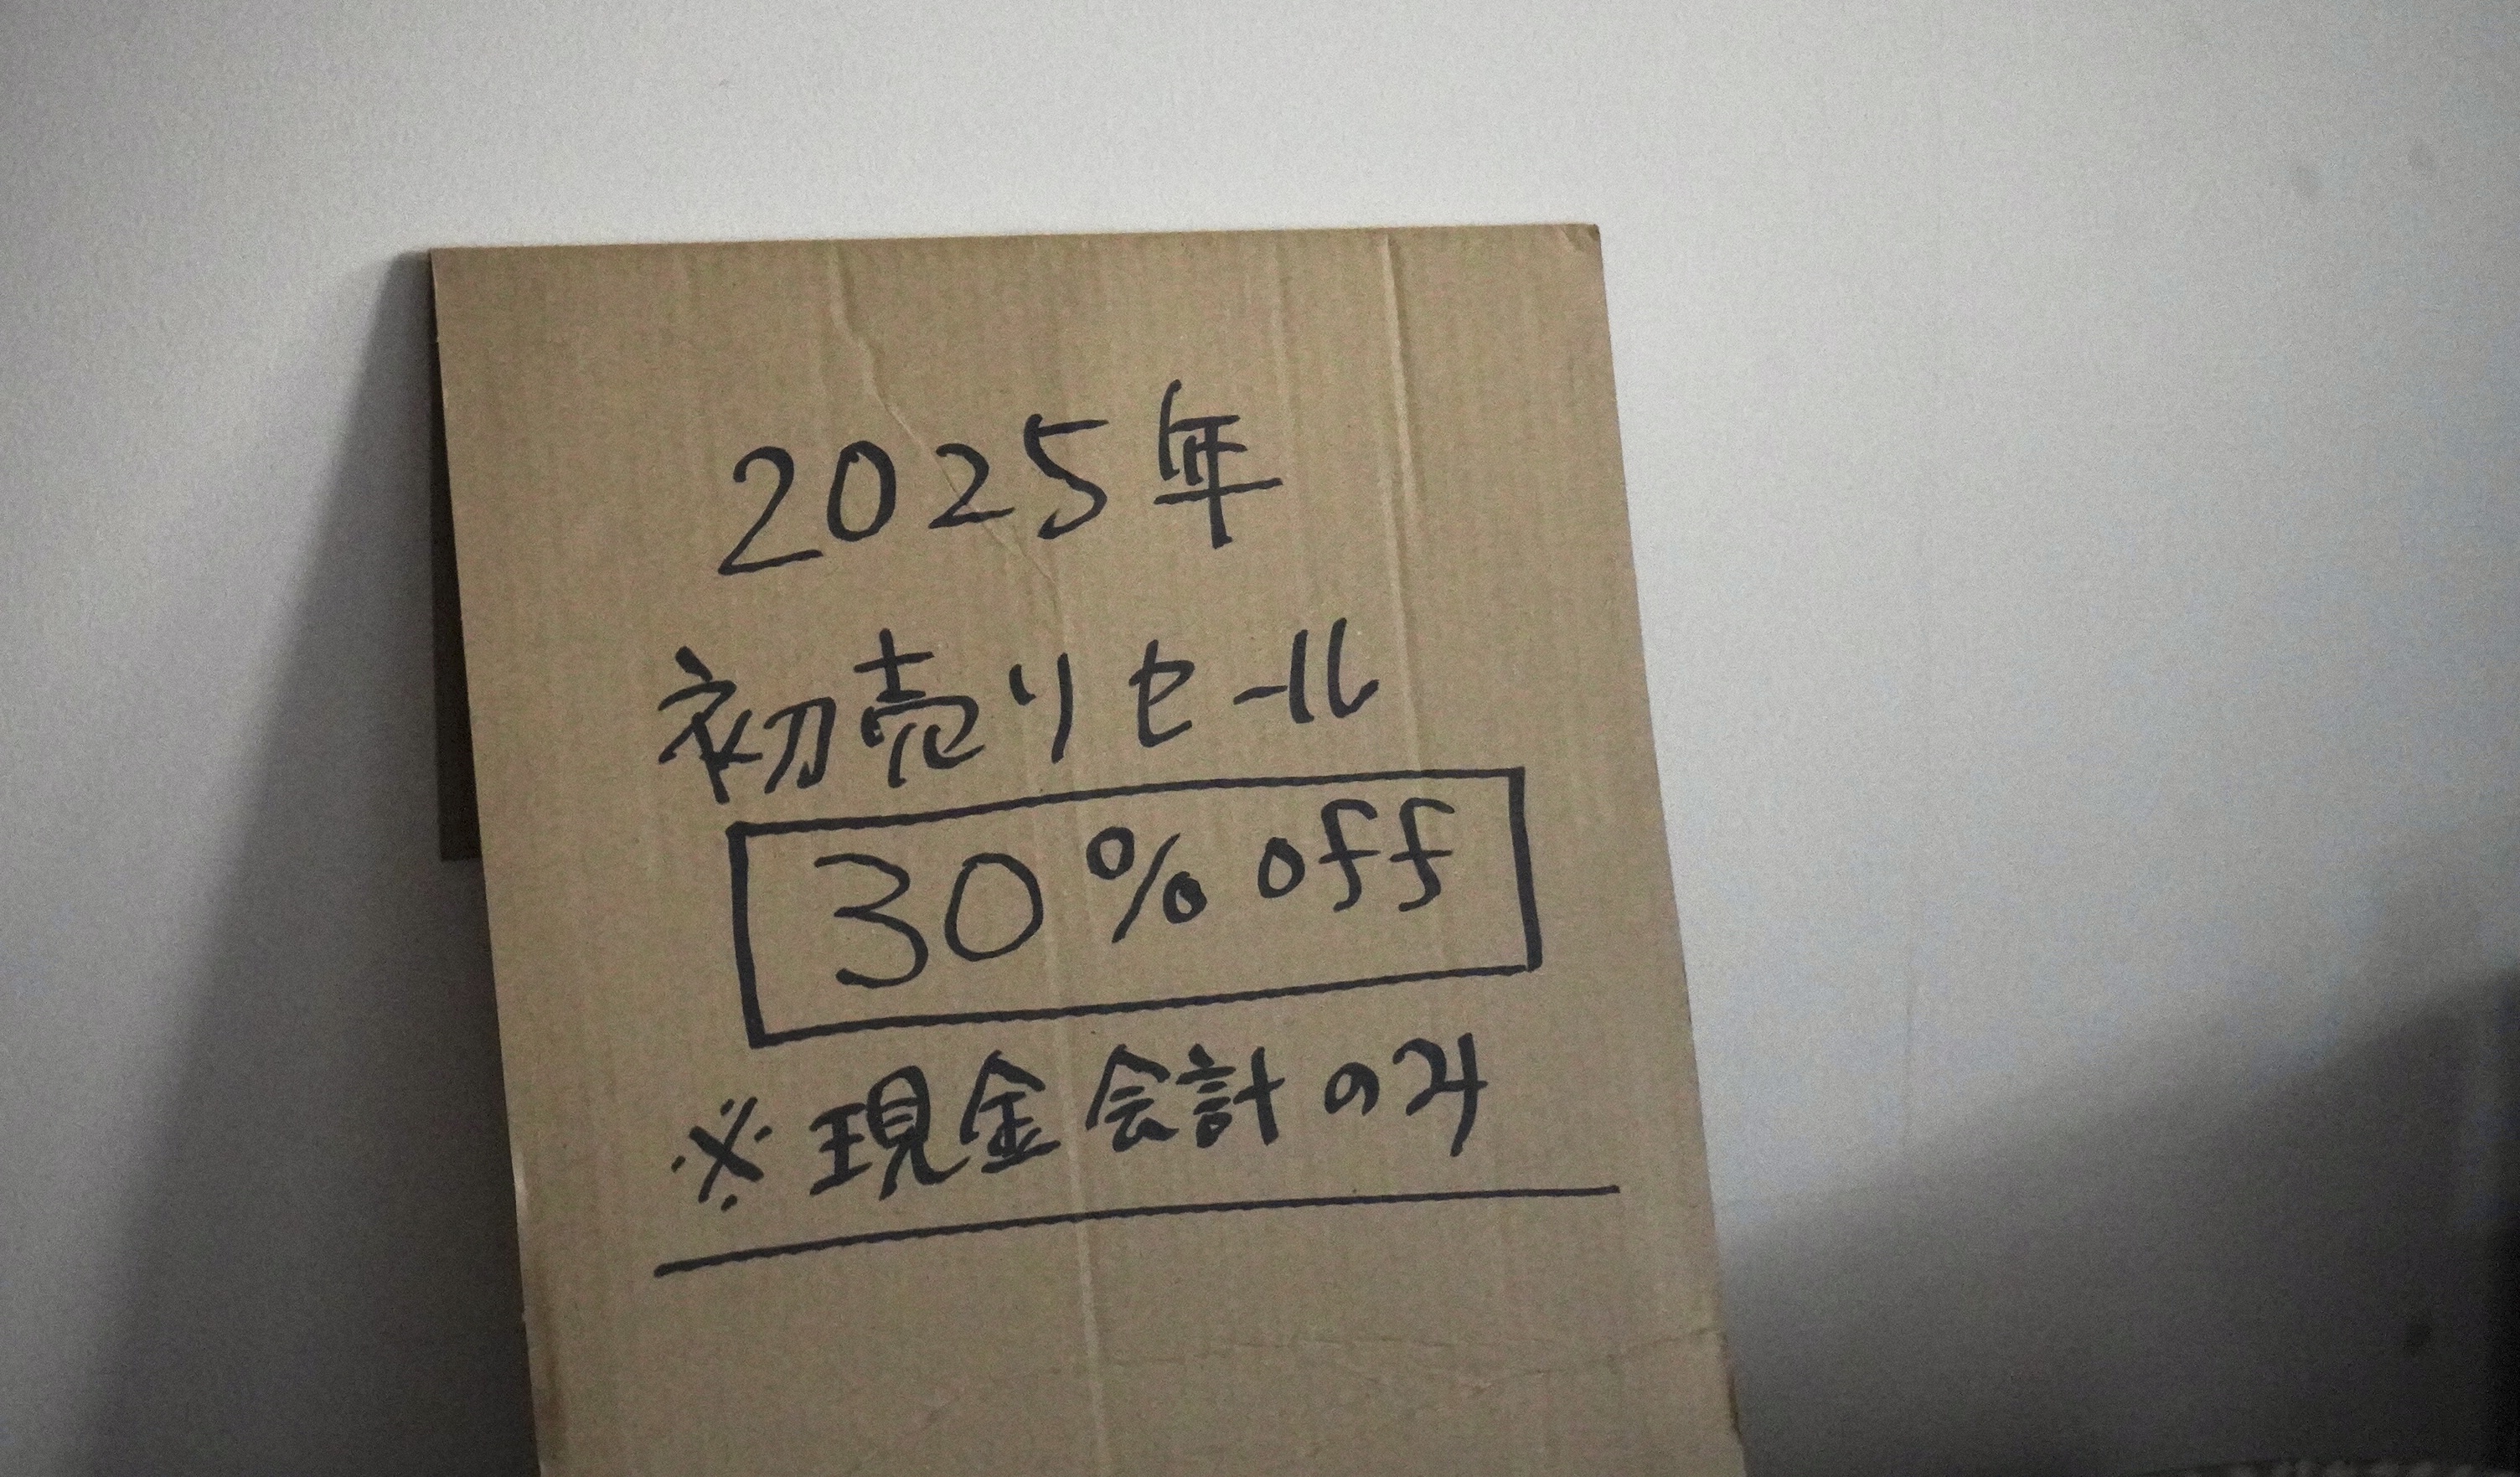 2025年
初売りセール
30% off
※現金会計のみ